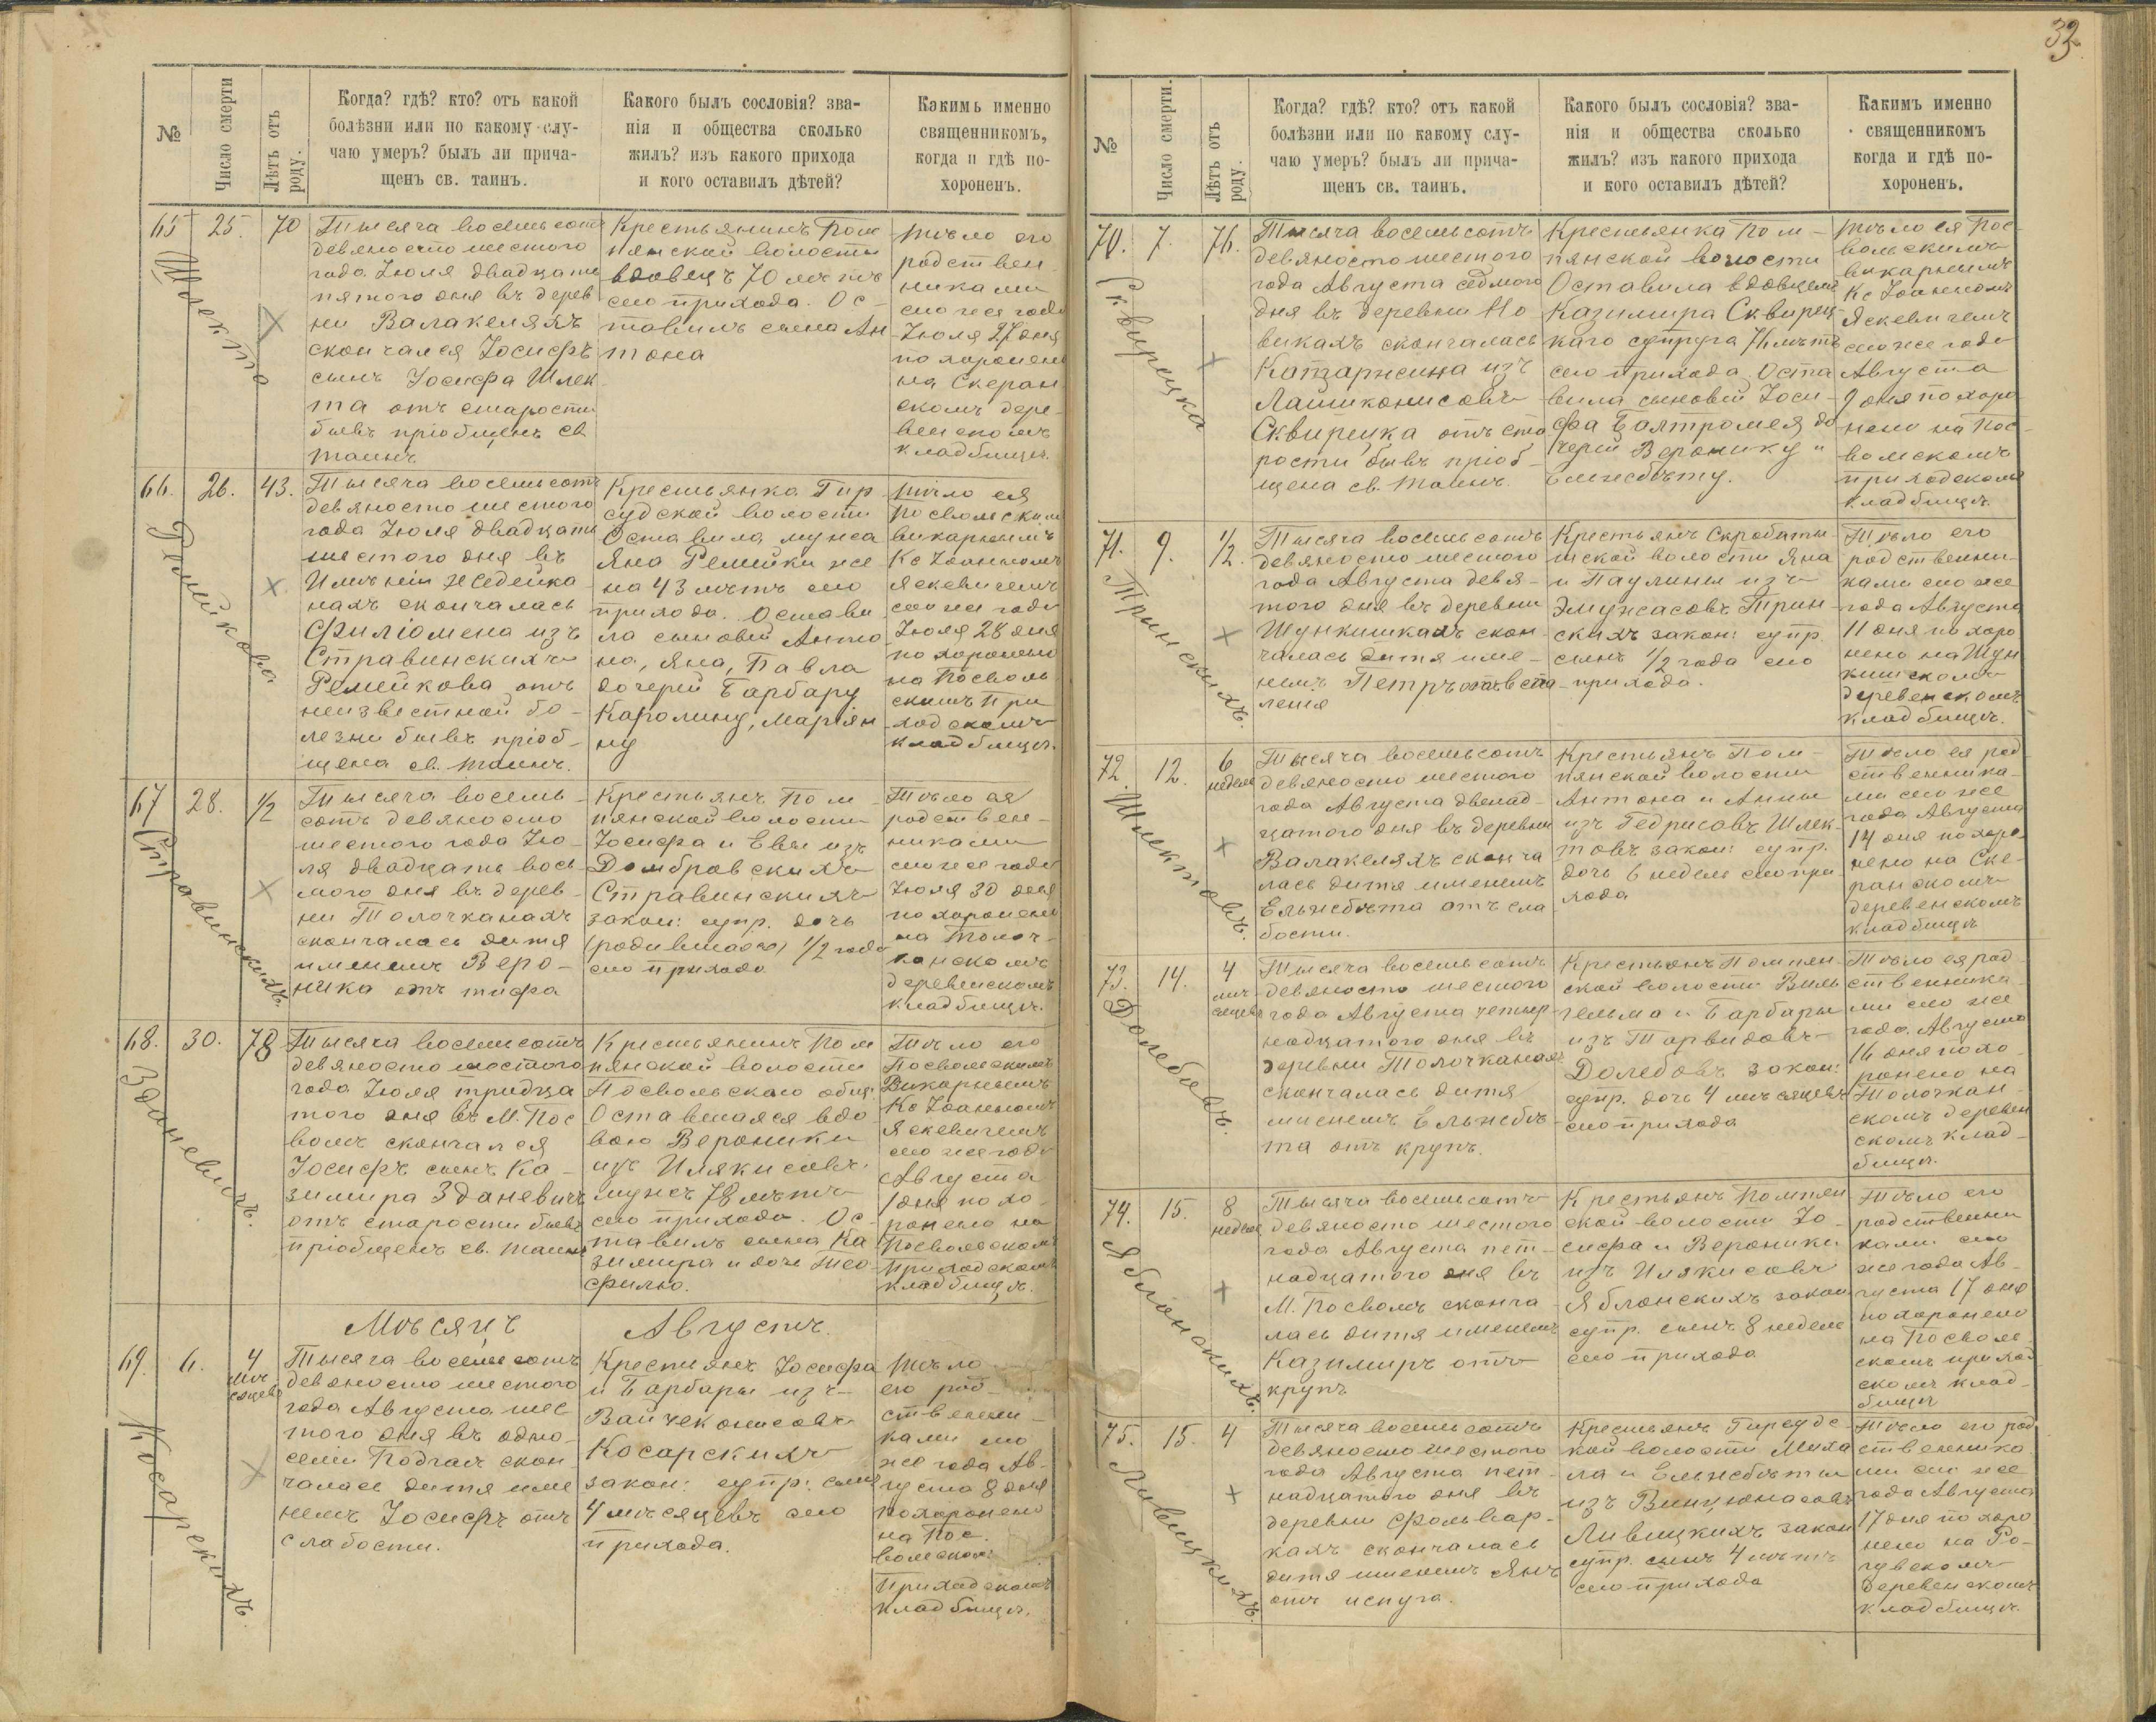 32
№
Число смерти
Лѣтъ отъ роду.
Когда? гдѣ? кто? отъ какой
болѣзни или по какому слу-
чаю умеръ? былъ ли прича-
щенъ св. таинъ.
Какого былъ сословія? зва-
нія и общества сколько
жилъ? изъ какого прихода
и кого оставилъ дѣтей?
Какимъ именно
священникомъ,
когда и гдѣ по-
хороненъ.
65
25.
70
Шлекто
Тысяча восемьсотъ
девяносто шестого
года Іюля двадцать
пятого дня въ дерев
ни Валакеляхъ
скончался Іосифъ
сынъ Іосифа Шлек
та отъ старости
бывъ пріобщенъ св
таинъ
Крестьянинъ Пом
пянской волости
вдовецъ 70 лѣтъ
сего прихода. Ос-
тавилъ сына Ан
тона
тѣло его
родствен
никами
сего же года
Іюля 27 дня
похоронено
на Скеран
скомъ дере-
венскомъ
кладбищѣ.
66.
26.
43.
Ремейкова
Тысяча восемьсотъ
девяносто шестого
года Іюля двадцать
шестого дня въ
Имѣніи Жедейка
нахъ скончалась
Филіомена изъ
Стравинскихъ
Ремейкова отъ
неизвестной бо-
лезни бывъ пріоб-
щена св. таинъ.
Крестьянка Гир
судской волости
Оставила мужа
Яна Ремейки же
на 43 лѣтъ сего
прихода. Остави
ла сыновей Анто
на, Яна, Павла
дочерей Барбару
Каролину, Маріян
ну
тѣло ея
Посвольскимъ
викарнымъ
Кс Іоанномъ
Яскевичемъ
сего же года
Іюля 28 дня
похоронено
на Посволь
скомъ При
ходскомъ
кладбищѣ.
67
28.
1/2
Стравинскихъ.
Тысяча восемь-
сотъ девяносто
шестого года Ію-
ля двадцать вось
мого дня въ дерев-
ни Толочканахъ
скончалась дитя
именемъ Веро-
ника отъ тифа
Крестьянъ Пом-
пянской волости
Іосифа и Евы изъ
Домбровскихъ
Стравинскихъ
закон: супр. дочь
(родившаяся) 1/2 года
сего прихода
Тѣло ея
родствен-
никами
сего же года
Іюля 30 дня
похоронено
на Толоч-
канскомъ
деревенскомъ
кладбищѣ.
68.
30.
78
Зданевичъ.
Тысяча восемьсотъ
девяносто шестого
года Іюля тридца
того дня въ М. Пос
волѣ скончался
Іосифъ сынъ Ка-
зимира Зданевичъ
отъ старости бывъ
пріобщенъ св. таинъ
Крестьянинъ Пом
пянской волости
Посвольскаго общ.
Оставшаяся вдо
вою Вероники
изъ Илякисовъ
мужъ 78 лѣтъ
сего прихода. Ос-
тавилъ сына Ка
зимира и дочь Тео
филю.
Тѣло его
Посвольскимъ
Викарнымъ
Кс Іоанномъ
Яскевичемъ
сего же года
Августа
1 дня похо-
ронено на
Посвольскомъ
приходскомъ
кладбищѣ.
Мѣсяцъ
Августъ.
69.
6.
4
мѣ
сяцевъ
Косарскихъ
Тысяча восемьсотъ
девяносто шестого
года Августа шес
того дня въ одно-
селіи Подгаи скон
чалась дитя име
немъ Іосифъ отъ
слабости.
Крестьянъ Іосифа
и Барбары изъ
Вайчеконисовъ
Косарскихъ
закон: супр: сынъ
4 мѣсяцевъ сего
прихода.
тѣло
его род-
ственни-
ками сего
же года Ав-
густа 8 дня
похоронено
на Пос-
вольском.
Приходскомъ
кладбищѣ.
№
Число смерти.
Лѣтъ отъ роду.
Когда? гдѣ? кто? отъ какой
болѣзни или по какому слу-
чаю умеръ? былъ ли прича-
щенъ св. таинъ.
Какого былъ сословія? зва-
нія и общества сколько
жилъ? изъ какого прихода
и кого оставилъ дѣтей?
Какимъ именно
священникомъ
когда и гдѣ по-
хороненъ.
70.
7.
76.
Сквирецка
Тысяча восемьсотъ
девяносто шестого
года Августа седмого
дня въ деревни Но
викахъ скончалась
Катаржина изъ
Лайшконисовъ
Сквирецка отъ ста
рости бывъ пріоб-
щена св. таинъ.
Крестьянка Пом-
пянской волости
Оставила вдовцемъ
Казимира Сквирец-
каго супруга 76 лѣтъ
сего прихода. Оста
вила сыновей Іоси-
фа Балтромея, до
черей Веронику и
Ельжбѣту.
тѣло ея Пос-
вольскимъ
викарнымъ
Кс Іоанномъ
Яскевичемъ
сего же года
Августа
9 дня похоро
нено на Пос-
вольскомъ
приходскомъ
кладбищѣ.
71.
9.
1/2.
Тринскихъ.
Тысяча восемьсотъ
девяносто шестого
года Августа девя-
того дня въ деревни
Шункишкахъ скон-
чалась дитя име-
немъ Петръ отъ вспа
ленія
Крестьянъ Скробаты-
шской волости Яна
и Паулины изъ
Эмужасовъ Трин-
скихъ закон: супр.
сынъ 1/2 года сего
прихода.
Тѣло его
родственни-
ками сего же
года Августа
11 дня похоро
нено на Шун
кишскомъ
деревенскомъ
кладбищѣ.
72.
12.
6
недель
Шлектовъ.
Тысяча восемьсотъ
девяносто шестого
года Августа двенад-
цатого дня въ деревни
Валакеляхъ сконча
лась дитя именемъ
Ельжбѣта отъ сла
бости.
Крестьянъ Пом-
пянской волости
Антона и Анны
изъ Гедрисовъ Шлек-
товъ закон: супр.
дочь 6 недель сего при
хода
Тѣло ея род
ственника-
ми сего же
года Августа
14 дня похоро-
нено на Ске-
ранскомъ
деревенскомъ
кладбищѣ
73.
14.
4
мѣ
сяцевъ
Долебовъ.
Тысяча восемьсотъ
девяносто шестого
года Августа четыр-
надцатого дня въ
деревни Толочканахъ
скончалась дитя
именемъ Ельжбѣ-
та отъ крупъ.
Крестьянъ Помпян-
ской волости Виль
гельма и Барбары
изъ Тарвидовъ
Долебовъ закон:
супр. дочь 4 мѣсяцевъ
сего прихода
Тѣло ея род
ственника
ми сего же
года Августа
16 дня похо
ронено на
Толочкан-
скомъ деревен
скомъ клад-
бищѣ.
74.
15.
8
недель
Яблонскихъ.
Тысяча восемьсотъ
девяносто шестого
года Августа пет-
надцатого дня въ
М. Посволѣ сконча
лась дитя именемъ
Казимиръ отъ
крупъ
Крестьянъ Помпян
ской волости Іо-
сифа и Вероники
изъ Илякисовъ
Яблонскихъ закон
супр. сынъ 8 недель
сего прихода
Тѣло его
родственни
ками сего
же года Ав-
густа 17 дня
похоронено
на Посволь
скомъ приход
скомъ клад-
бищѣ
75.
15.
4
Ливицкихъ.
Тысяча восемьсотъ
девяносто шестого
года Августа пет-
надцатого дня въ
деревни Фольвар-
кахъ скончалась
дитя именемъ Янъ
отъ испуга.
Крестьянъ Гирсудс-
кой волости Миха
ла и Ельжбѣты
изъ Винцюнасовъ
Ливицкихъ закон
супр. сынъ 4 лѣтъ
сего прихода
Тѣло его род
ственника
ми сего же
года Августа
17 дня похоро
нено на Ро-
гувскомъ
деревенскомъ
кладбищѣ.